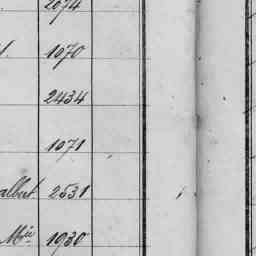 2074
1070
2434
1071
albert 2531
Mie 1930